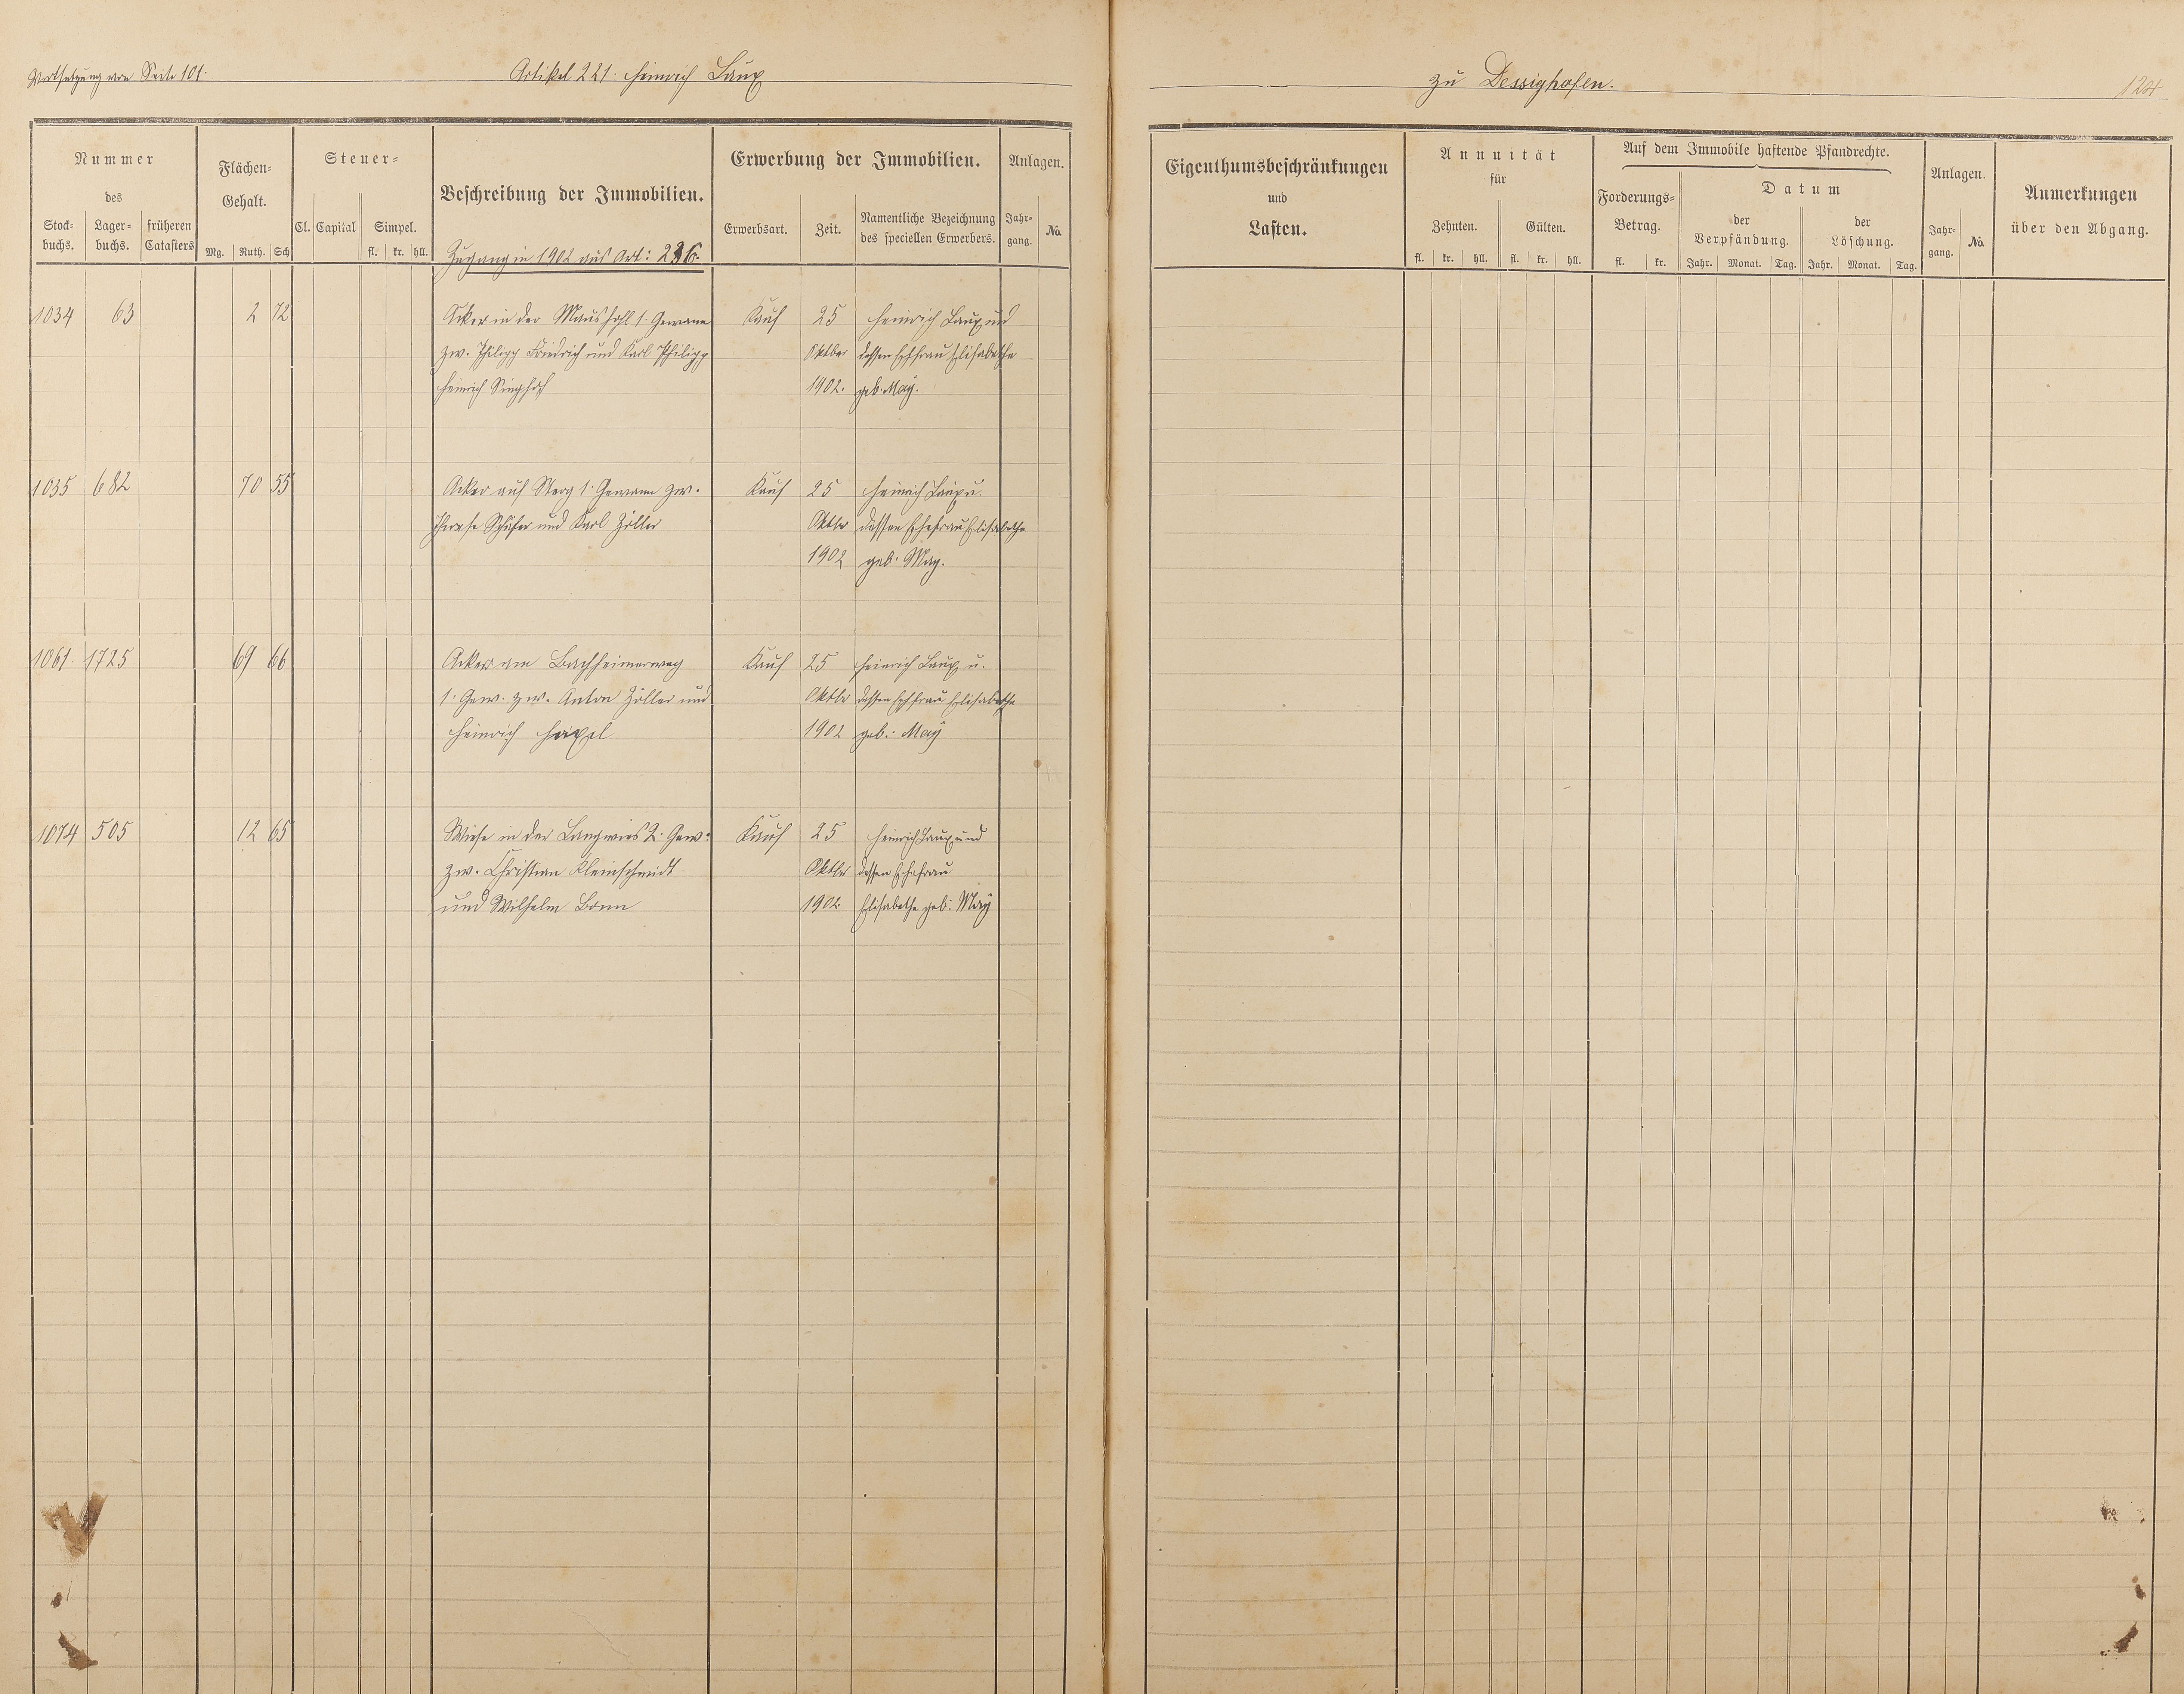 Fortsetzung von Seite 101. Artikel 221. Heinrich Laux zu Dessighofen. 124
Nummer des
Stockbuchs. Lagerbuchs. früheren Catasters
Flächen-Gehalt.
Mg. Ruth. Sch
Steuer-
Cl. Capital Simpel.
fl. kr. hll.
Beschreibung der Immobilien.
Zugang in 1902 aus Art: 236.
Erwerbung der Immobilien.
Erwerbsart. Zeit. Namentliche Bezeichnung
des speciellen Erwerbers.
Anlagen.
Jahrgang. No.
Eigenthumsbeschränkungen
und
Lasten.
Annuität
für
Zehnten. Gülten.
fl. kr. hll. fl. kr. hll.
Auf dem Immobile haftende Pfandrechte.
Forderungs-
Betrag.
fl. kr.
Datum
der Verpfändung. der Löschung.
Jahr. Monat. Tag. Jahr. Monat. Tag.
Anlagen.
Jahrgang. No.
Anmerkungen
über den Abgang.
1034 63 2 72 Acker in der Maushohl 1. Gewann Kauf 25 Heinrich Laux und
zw. Philipp Friedrich und Karl Philipp Oktber dessen Ehfrau Elisabethe
Heinrich Singhof 1902. geb. May.
1035 682 70 55 Acker auf Sterg 1. Gewann zw. Kauf 25 Heinrich Laux u.
Therese Schäfer und Karl Zöller Oktbr dessen Ehefrau Elisabethe
1902 geb. May.
1061. 1725 69 66 Acker am Bachheimerweg Kauf 25 Heinrich Laux u.
1. Gew. zw. Anton Zöller und Oktbr dessen Ehfrau Elisabethe
Heinrich 1902 geb. May
1074 505 12 65 Wiese in der Langwies 2. Gew: Kauf 25 Heinrich Laux und
zw. Christian Kleinschmidt Oktbr dessen Ehefrau
und Wilhelm Bonn 1902. Elisabethe geb. May